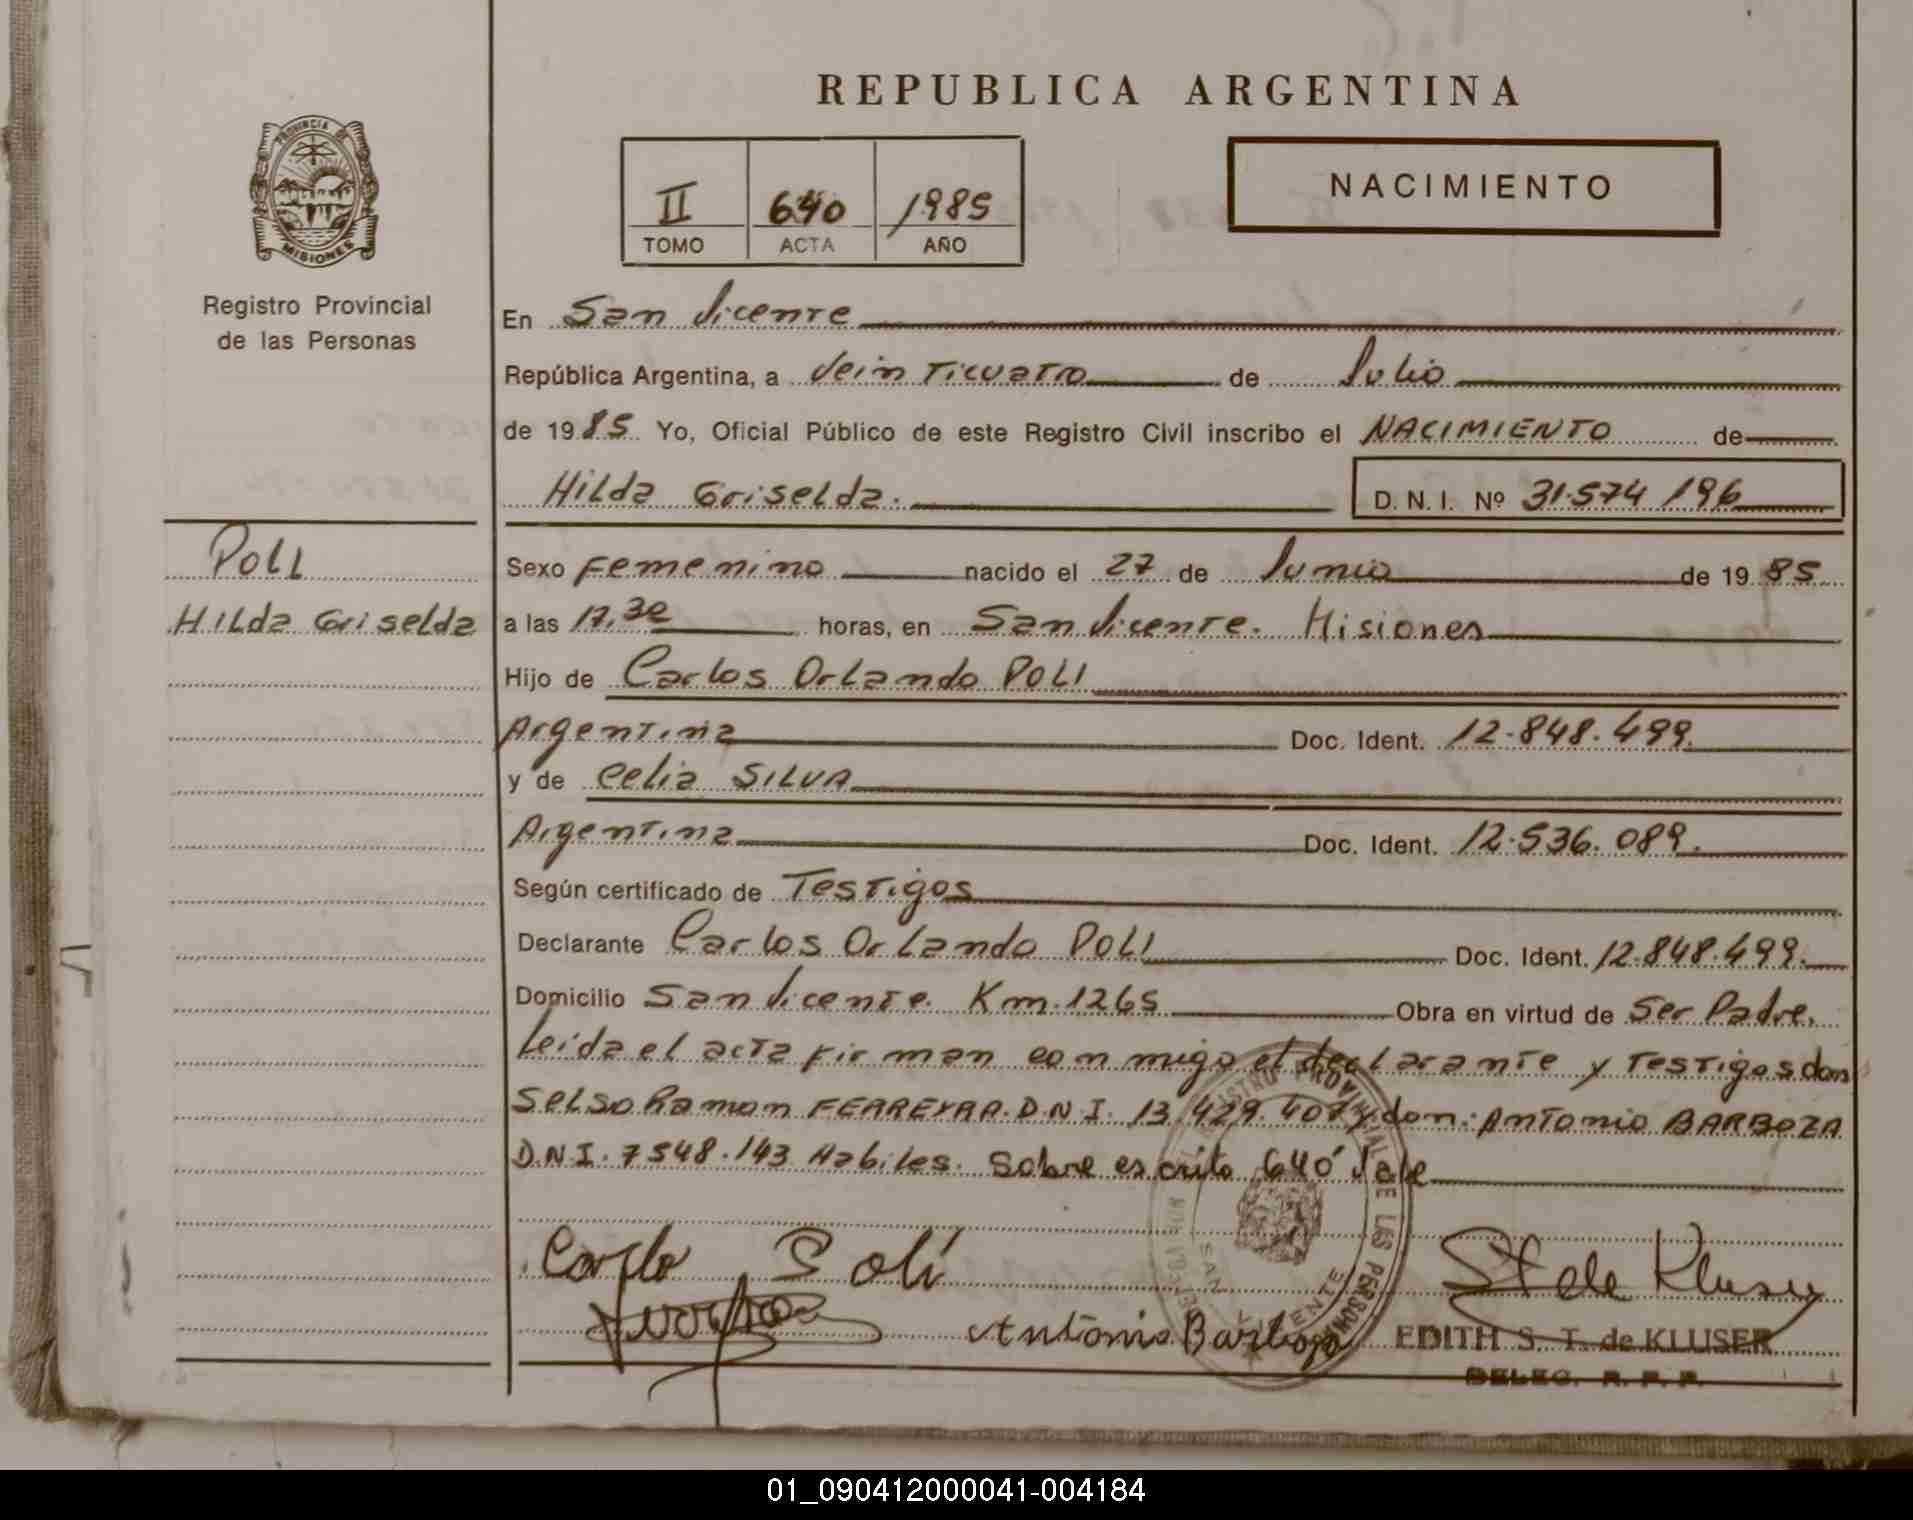 REPUBLICA ARGENTINA
PROVINCIA DE
MISIONES
Registro Provincial
de las Personas
II 640 1985
TOMO ACTA AÑO
NACIMIENTO
En San Vicente
República Argentina, a Vein Ticuatro de Julio
de 1985 Yo, Oficial Público de este Registro Civil inscribo el NACIMIENTO de
Hilda Griselda. D. N. I. Nº 31.574 196
POLI
Hilda Griselda
Sexo Femenino nacido el 27 de Junio de 1985
a las 17,30 horas, en San Vicente. Misiones
Hijo de Carlos Orlando POLI
Argentina Doc. Ident. 12.848.499.
y de Celia SILVA
Argentina Doc. Ident. 12.536.089.
Según certificado de Testigos
Declarante Carlos Orlando POLI Doc. Ident. 12.848.499.
Domicilio San Vicente. Km.1265 Obra en virtud de Ser Padre.
Leida el acta firman conmigo el declarante y Testigos don
Selso Ramon FERREYRA. D.N.I. 13.429.407 y don: Antonio BARBOZA
D.N.I. 7548.143 Habiles. Sobre escrito 640 Vale
Carlo Poli
St de Kluser
Antonio Barboza
EDITH S. T. de KLUSER
DELEG. R. P. P.
SAN VICENTE
01_090412000041-004184